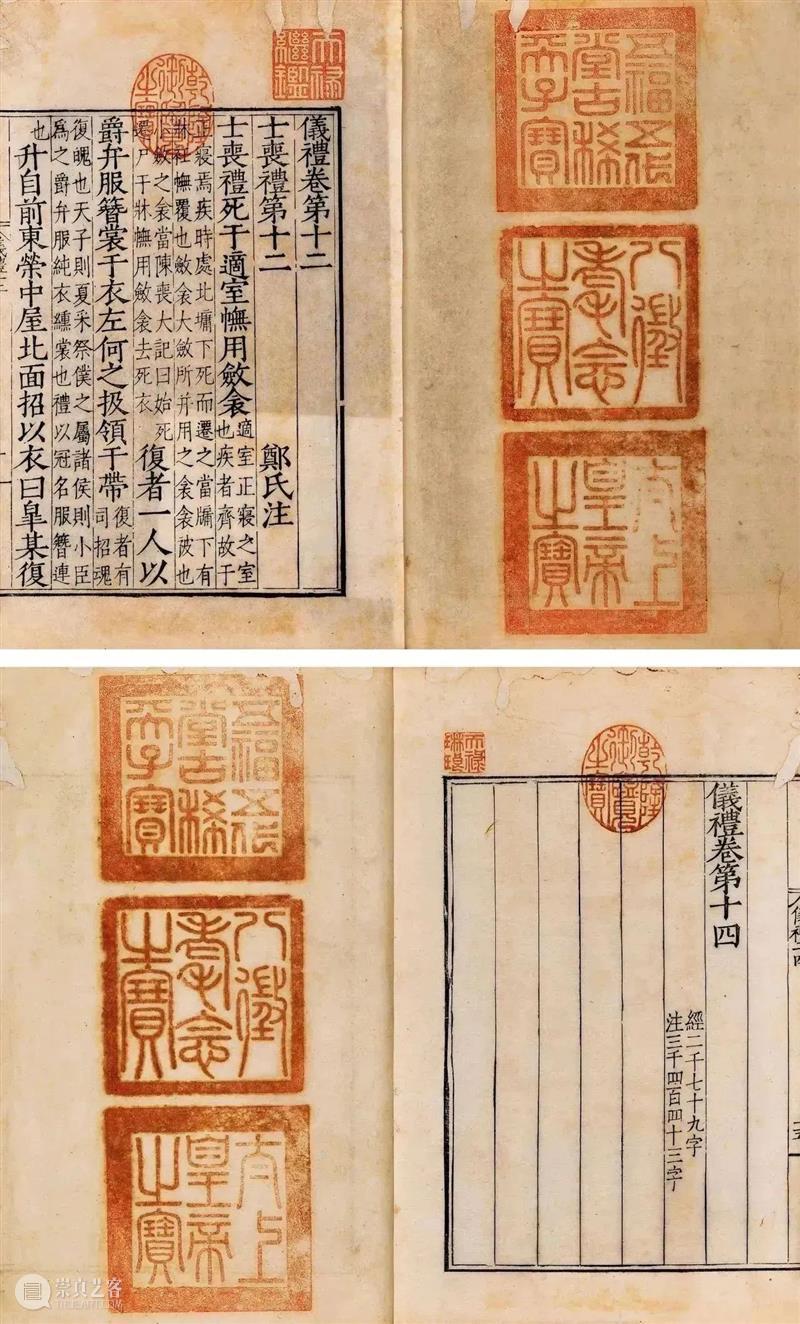 五福五代堂古稀天子寶
八徵耄念之寶
太上皇帝之寶
天祿繼鑑
乾隆御覽之寶
儀禮卷第十二
士喪禮第十二 鄭氏注
士喪禮死于適室幠用斂衾適室正寢之室也疾者齊故于
正寢焉疾時處北墉下死而遷之當牖下有
牀衽幠覆也斂衾大斂所并用之衾衾被也
小斂之衾當陳喪大記曰始死
遷尸于牀幠用斂衾去死衣
復者一人以
爵弁服簪裳于衣左何之扱領于帶復者有司招魂
復魄也天子則夏采祭僕之屬諸侯則小臣
爲之爵弁服純衣纁裳也禮以冠名服簪連
也升自前東榮中屋北面招以衣曰皐某復
乾隆御覽之寶
天祿琳琅
儀禮卷第十四
經二千七十九字
注三千四百四十三字
五福五代堂古稀天子寶
八徵耄念之寶
太上皇帝之寶
崇真艺客